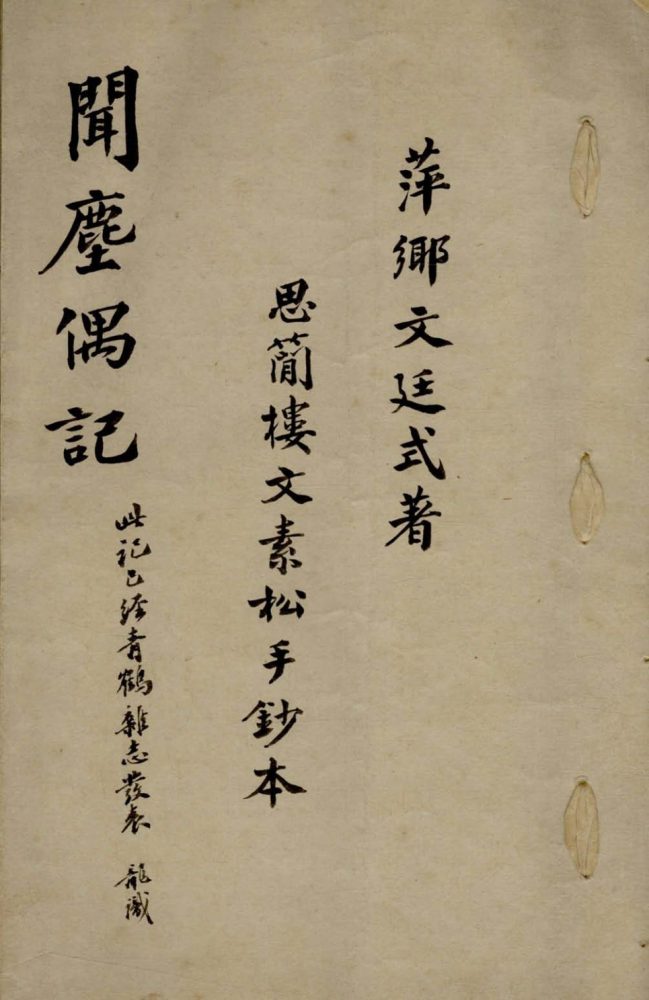 萍鄉文廷式著
思蕳樓文素松手鈔本
聞塵偶記
此記已經青鶴雜志發表 龍識